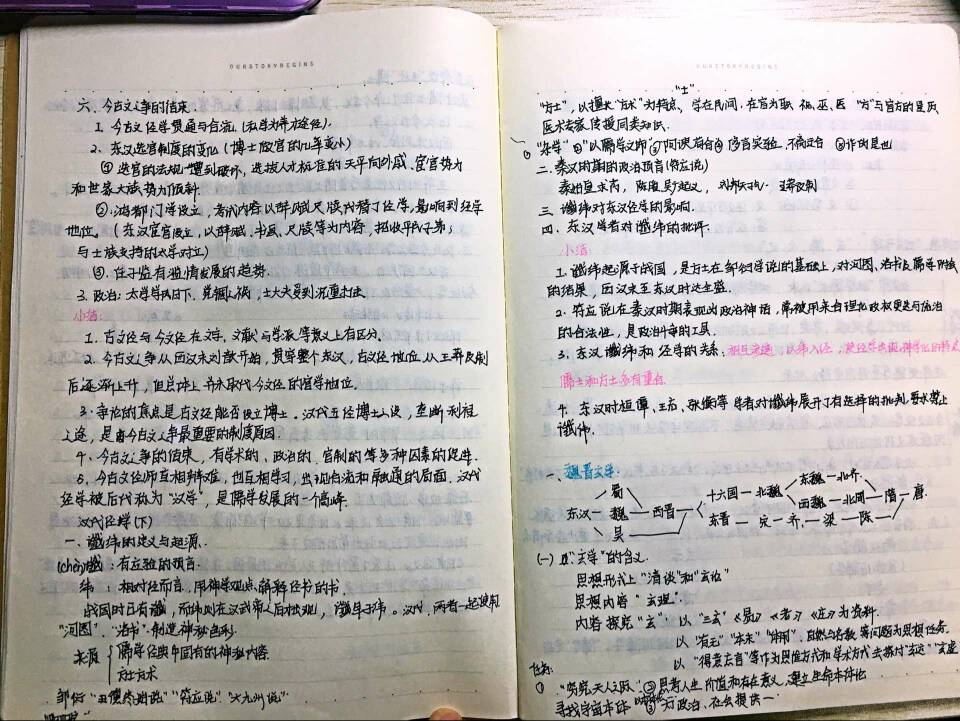 OURSTORYBEGINS
六、今古文之争的结束.
1. 今古文经学贯通与合流.
2. 东汉选官制度的变化(博士的官的几率变小)
① 选官的法规遭到破坏, 选拔人才标准的天平向外戚、宦官势力
和世家大族势力倾斜.
②. 鸿都门学设立, 考试内容以辞赋尺牍代替了经学, 影响到经学
地位。(东汉宦官设立, 以辞赋、书画、尺牍等为内容, 招收平民子弟,
与士族支持的太学对立)
③. 任子监有滥情发展的趋势.
3. 政治: 太学, 党锢之祸, 士大夫受到沉重打击.
小结:
1. 古文经与今文经在文字、文献与学派等意义上有区分.
2. 今古文之争从西汉末刘歆开始, 贯穿整个东汉, 古文经地位从王莽改制
后逐渐上升, 但总体上并未取代今文经的官学地位.
3. 争论的焦点是古文经能否设立博士。汉代五经博士之设, 垄断利禄
之途, 是今古文之争最重要的制度原因.
4. 今古文之争的结束, 有学术的、政治的、官制的等多种因素的促进.
5. 今古文经师互相辩难, 也互相学习, 出现合流和融通的局面. 汉代
经学被后代称为“汉学”, 是儒学发展的一个高峰.
汉代经学(下)
一、谶纬的定义与起源.
(chèn)谶: 有应验的预言.
纬: 相对经而言, 用神学观点解释经书的书.
战国时已有谶, 而纬则在汉武帝之后才出现, 谶早于纬。汉代, 两者一起使用
“河图”、“洛书”制造神秘色彩.
来源 { 儒学经典中固有的神秘内容.
方士方术
邹衍“五德终始说”“符应说”“大九州说”
OURSTORYBEGINS
“士”
“方士”, 以擅长“方术”为特点, 学在民间, 在官为职 祝、巫、医 “方”与官方的
医术专家传授同类知识.
二. 秦汉时期的政治预言(符应说)
三. 谶纬对东汉经学的影响.
四. 东汉学者对谶纬的批评.
小结:
1. 谶纬起源于战国, 是方士在邹衍学说的基础上, 对河图、洛书及儒学
的结果, 西汉末至东汉时达全盛.
2. 符应说在秦汉时期表现为政治神话, 常被用来合理化政权更迭与统治
的合法性, 是政治斗争的工具.
3. 东汉谶纬和经学的关系: 相互渗透, 以纬入经, 使经学出现神学化的特点
儒士和方士多有重合
4. 东汉时桓谭、王充、张衡等学者对谶纬展开了有选择的批判, 要求禁止
谶纬.
一、魏晋玄学:
蜀 十六国—北魏 东魏—北齐
东汉—魏—西晋 西魏—北周—隋—唐.
吴 东晋—宋—齐—梁—陈
(一)“玄学”的含义.
思想形式上“清谈”和“玄论”
思想内容“玄理”.
内容探究“玄”: 以“三玄”《易》《老》《庄》为资料.
以“有无”“本末”“体用”、自然与名教等问题为思想任务.
以“得意忘言”等作为思维方式和学术方式去探讨“玄远”“玄虚
任务:
① “穷究天人之际”, ② 思考人生价值和存在意义, 建立生命本体论
寻找宇宙本体 ③ 为政治、社会提供一